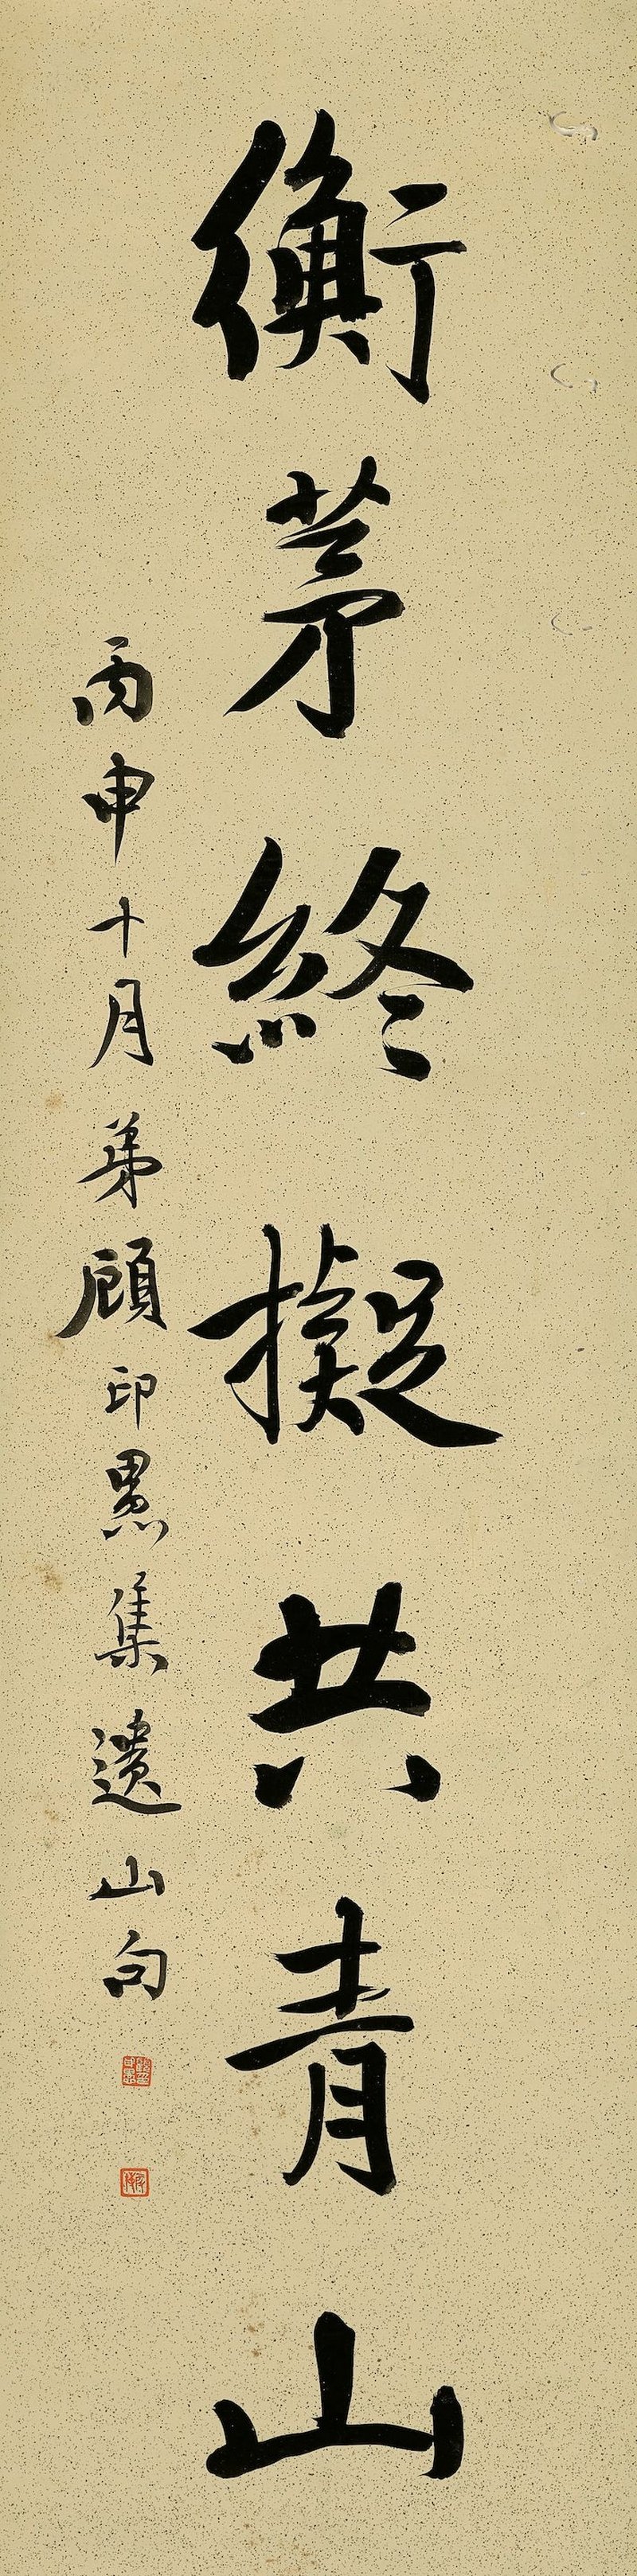 衡茅終擬共青山
丙申十月弟顧印愚集遺山句